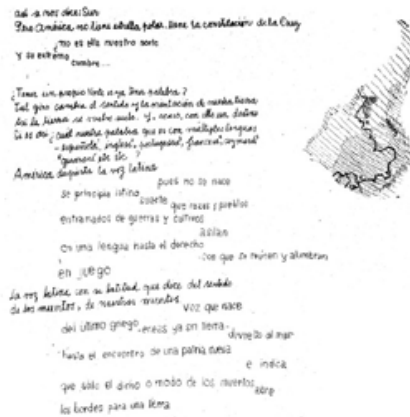 así a nos dice: Sur
Pero América no tiene estrella polar, tiene la constelación de la Cruz
¿no es ella nuestro norte
y su extremo
cumbre...
¿Tener un propio Norte es ya otra palabra?
Tal giro cambia el sentido y la orientación de nuestra tierra
Así la tierra se vuelve suelo. Y, acaso, con ello un destino
Si es así ¿cuál nuestra palabra que es con múltiples lenguas
- "española, inglesa, portuguesa, francesa, aymará"
"guaraní" etc etc ?
América despierta la voz latina
pues no se nace
se principia latino
suerte
que razas y pueblos
entrañados de guerras y cultivos
aislan
en una lengua hasta el derecho
con que se reúnen y alumbran
en juego
La voz latina con su latitud que dice del sentido
de los muertos, de nuestros muertos
voz que nace
del último griego
eneas ya en tierra
devuelto al mar
hasta el encuentro de una patria nueva
e indica
que sólo el divino o modo de los muertos
abre
los bordes para una tierra